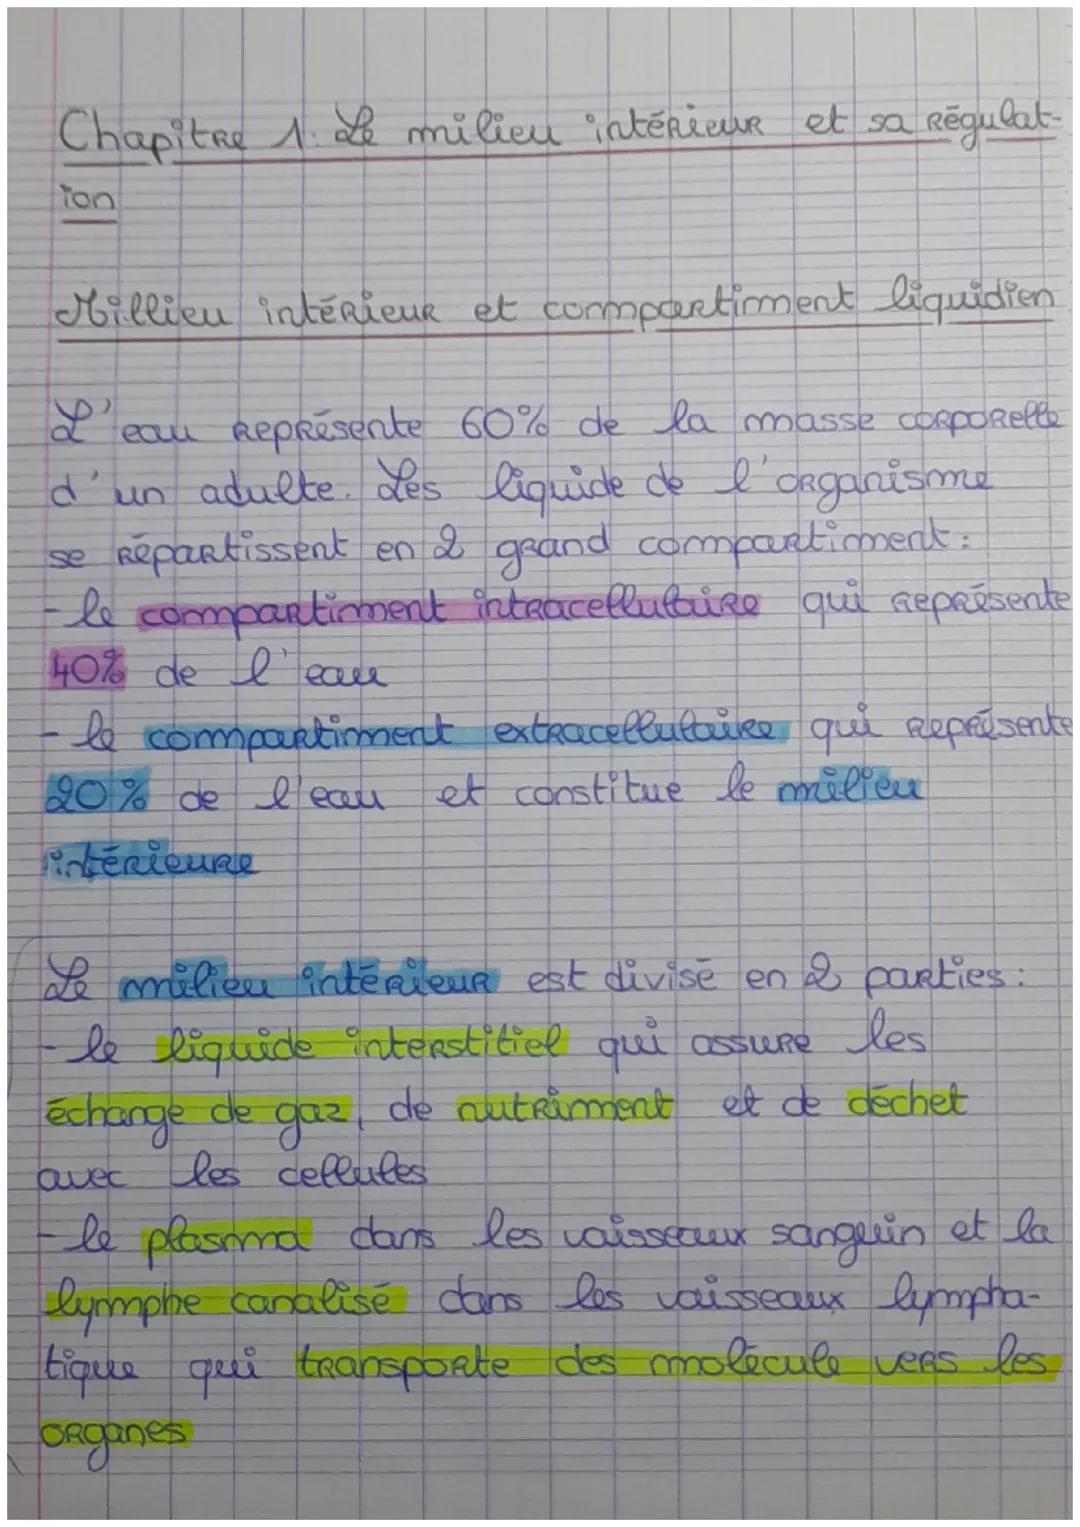 Chapitre 1: Le milieu intérieur et sa régulat-
ion
Millieu intérieur et compartiment liquidien
L'eau représente 60% de la masse corporelle
d'un adulte. Les liquide de l'organisme
se répartissent en 2 grand compartiment :
- le compartiment intracellulaire qui représente
40% de l'eau
- le compartiment extracellulaire qui représente
20% de l'eau et constitue le milieu
intérieure
Le milieu intérieur est divisé en 2 parties :
- le liquide interstitiel qui assure les
échange de gaz, de nutriment et de déchet
avec les cellules
- le plasma dans les vaisseaux sanguin et la
lymphe canalisé dans les vaisseaux lympha-
tique qui transporte des molécule vers les
organes